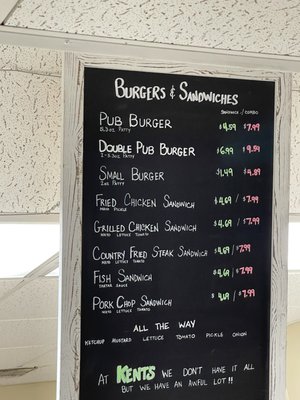 BURGERS & SANDWICHES
SANDWICH / COMBO
PUB BURGER $4.59 / $7.99
5.3oz PATTY
DOUBLE PUB BURGER $6.99 / $9.59
2-5.3oz PATTY
SMALL BURGER $1.49 / $4.89
2oz PATTY
FRIED CHICKEN SANDWICH $4.69 / $7.99
MAYO PICKLE
GRILLED CHICKEN SANDWICH $4.69 / $7.99
MAYO LETTUCE TOMATO
COUNTRY FRIED STEAK SANDWICH $4.69 / $7.99
MAYO LETTUCE TOMATO
FISH SANDWICH $4.69 / $7.99
TARTAR SAUCE
PORK CHOP SANDWICH $4.69 / $7.99
MAYO LETTUCE TOMATO
ALL THE WAY
KETCHUP MUSTARD LETTUCE TOMATO PICKLE ONION
AT KENTS WE DON'T HAVE IT ALL
BUT WE HAVE AN AWFUL LOT!!